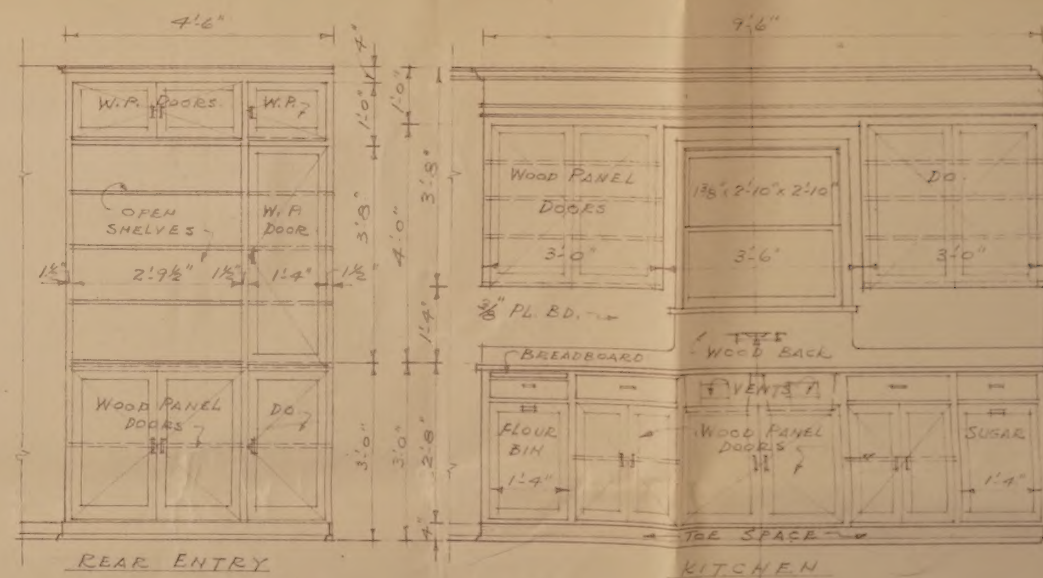 4'-6"
4"
W.P. DOORS.
W.P.
1'-0"
OPEN
SHELVES
W.P.
DOOR
3'-8"
1½"
2'-9½"
1½"
1'-4"
1½"
WOOD PANEL
DOORS
DO
3'-0"
REAR ENTRY
1'-0"
4'-0"
3'-0"
3'-8"
1'-4"
2'-8"
4"
9'-6"
WOOD PANEL
DOORS
3'-0"
1⅜" x 2'-10" x 2'-10"
3'-6"
DO.
3'-0"
⅜" PL. BD.
BREADBOARD
WOOD BACK
VENTS
FLOUR
BIN
1'-4"
WOOD PANEL
DOORS
SUGAR
1'-4"
TOE SPACE
KITCHEN